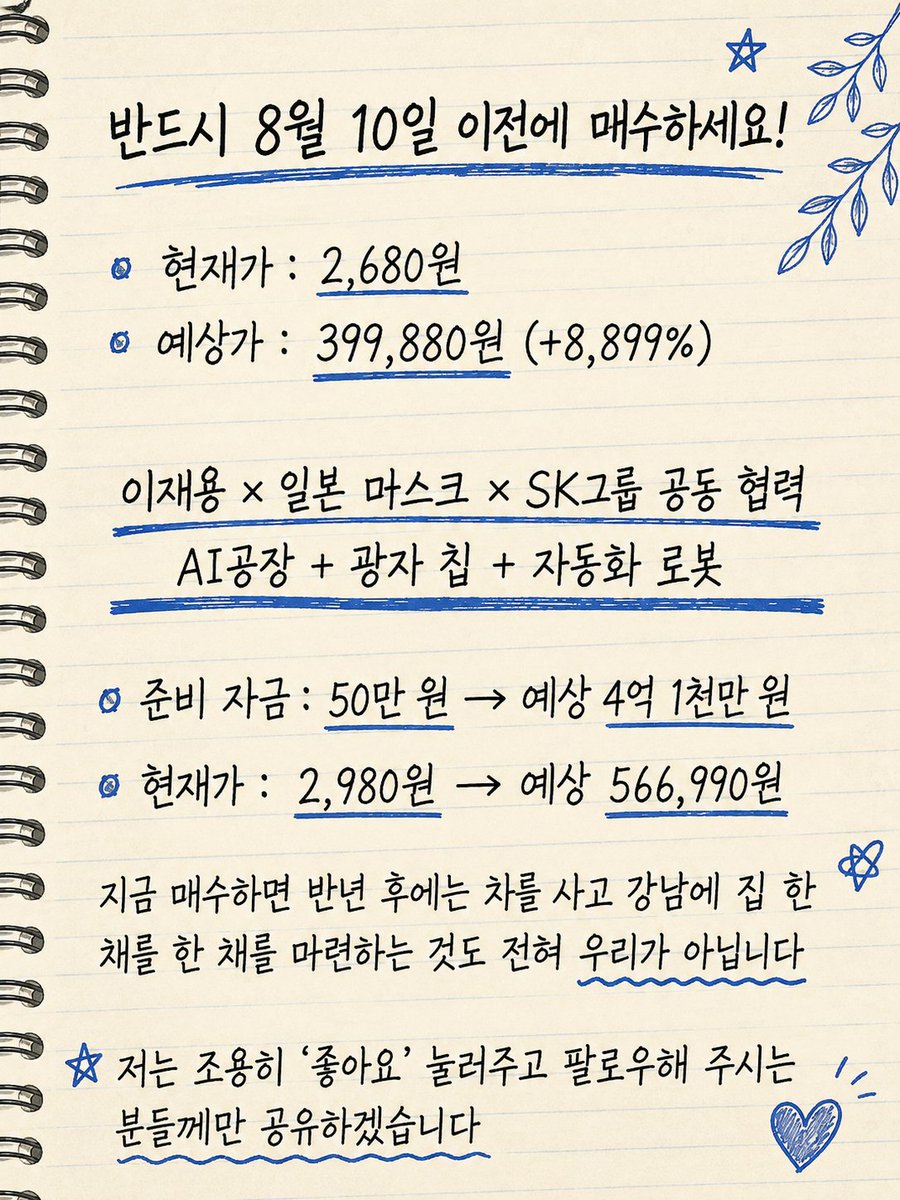 반드시 8월 10일 이전에 매수하세요!
현재가 : 2,680원
예상가 : 399,880원 (+8,899%)
이재용 × 일본 마스크 × SK그룹 공동 협력
AI공장 + 광자 칩 + 자동화 로봇
준비 자금 : 50만 원 → 예상 4억 1천만 원
현재가 : 2,980원 → 예상 566,990원
지금 매수하면 반년 후에는 차를 사고 강남에 집 한
채를 한 채를 마련하는 것도 전혀 우리가 아닙니다
저는 조용히 ‘좋아요’ 눌러주고 팔로우해 주시는
분들께만 공유하겠습니다